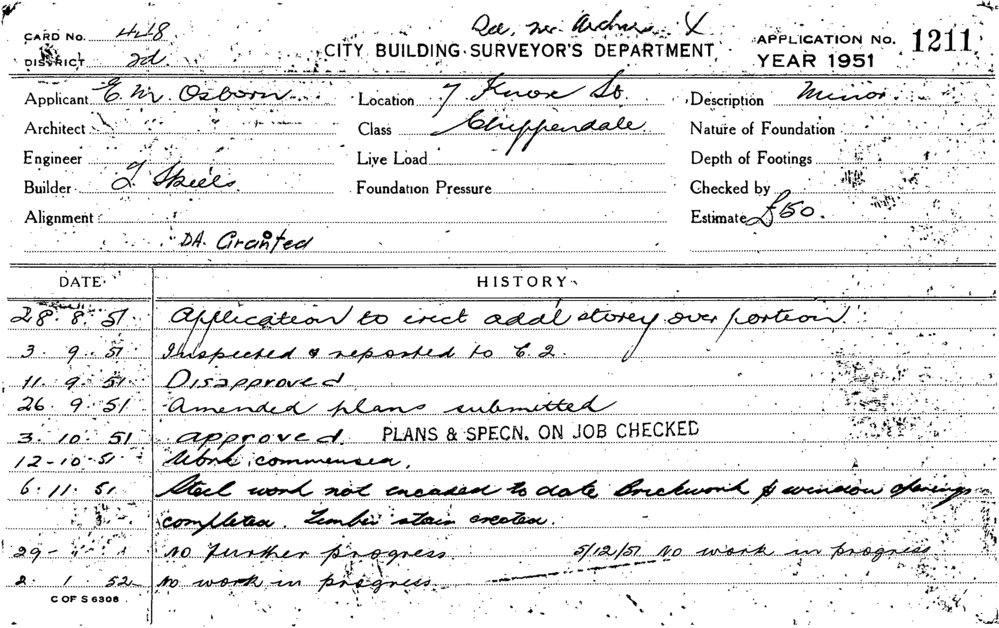 CARD No. 418
CITY BUILDING SURVEYOR'S DEPARTMENT
APPLICATION No. 1211
DISTRICT 2d
YEAR 1951
Applicant E. M. Osborn
Location 7 Knox St.
Description Minor
Architect
Class Chippendale
Nature of Foundation
Engineer
Live Load
Depth of Footings
Builder J Skeels
Foundation Pressure
Checked by
Alignment
Estimate £50.
DA. Granted
DATE
HISTORY
28. 8. 51 Application to erect addl storey over portion
3. 9. 51 Inspected & reported to C.2.
11. 9. 51 Disapproved
26. 9. 51 Amended plans submitted
3. 10. 51 approved. PLANS & SPECN. ON JOB CHECKED
12-10-51 Work commenced.
6. 11. 51 Steel work not encased to date Brickwork & window openings
completed. Timber stair erected.
29 - No further progress 5/12/51 No work in progress
2. 1. 52 No work in progress
C OF S 6308